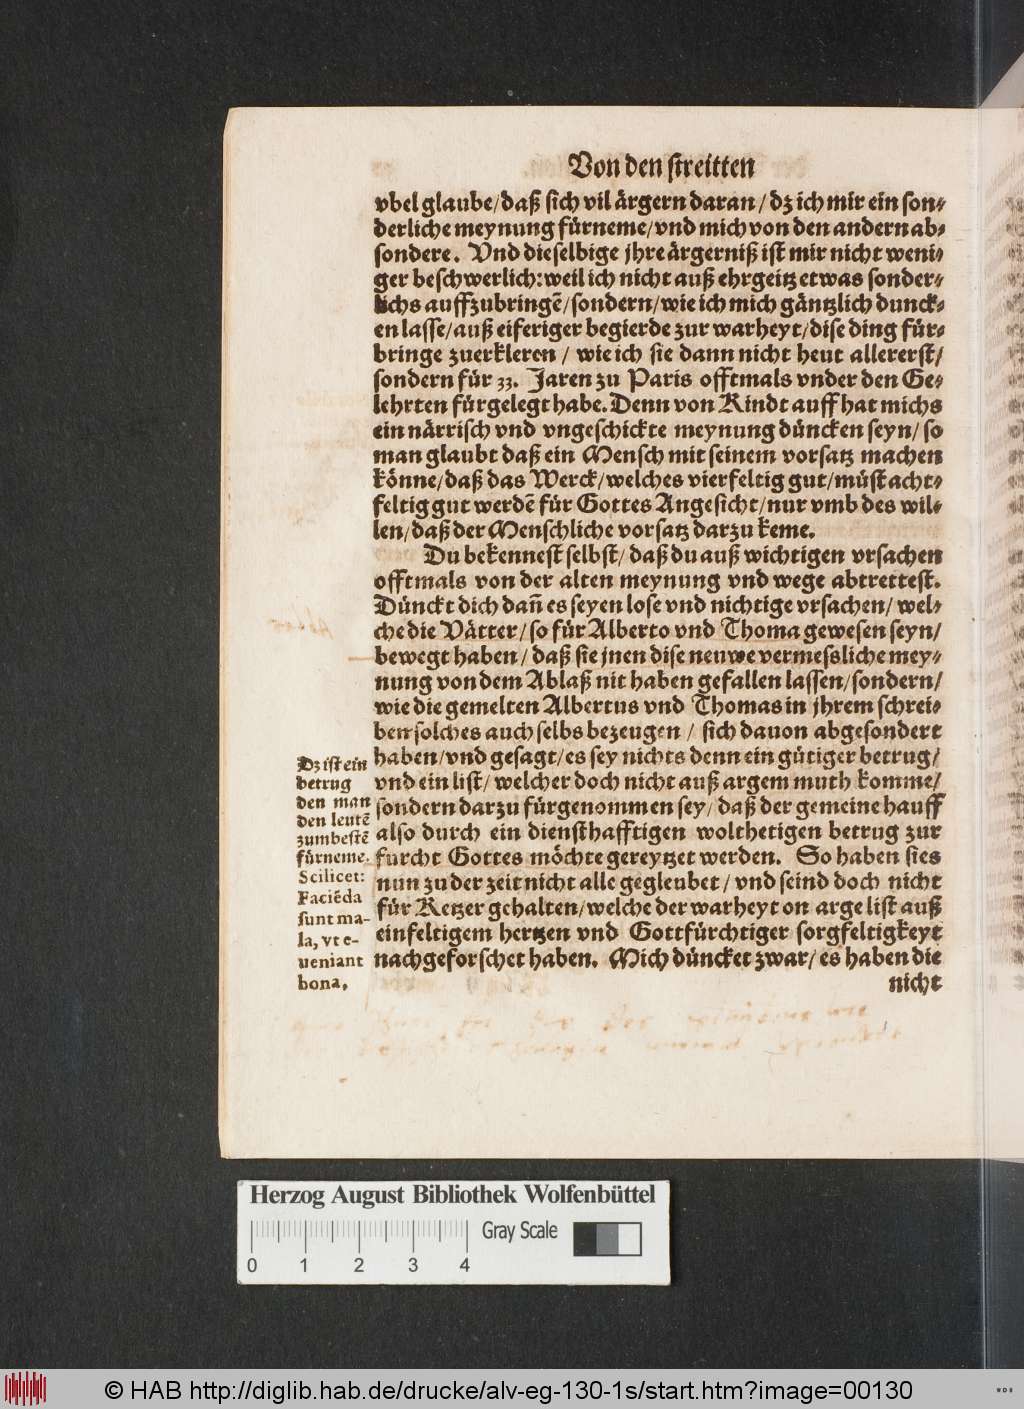 Von den streitten
vbel glaube/daß sich vil ärgern daran/dz ich mir ein son⸗
derliche meynung fürneme/vnd mich von den andern ab⸗
sondere. Vnd dieselbige jhre ärgerniß ist mir nicht weni⸗
ger beschwerlich: weil ich nicht auß ehrgeitz etwas sonder⸗
lichs auffzubringẽ/sondern/wie ich mich gäntzlich dunck⸗
en lasse/auß eiferiger begierde zur warheyt/dise ding für⸗
bringe zuerkleren/wie ich sie dann nicht heut allererst/
sondern für 33. Jaren zu Paris offtmals vnder den Ge⸗
lehrten fürgelegt habe. Denn von Kindt auff hat michs
ein närrisch vnd vngeschickte meynung düncken seyn/so
man glaubt daß ein Mensch mit seinem vorsatz machen
könne/daß das Werck/welches vierfeltig gut/müst acht⸗
feltig gut werdẽ für Gottes Angesicht/nur vmb des wil⸗
len/daß der Menschliche vorsatz darzu keme.
Du bekennest selbst/daß du auß wichtigen vrsachen
offtmals von der alten meynung vnd wege abtrettest.
Dünckt dich dañ es seyen lose vnd nichtige vrsachen/wel⸗
che die Vätter/so für Alberto vnd Thoma gewesen seyn/
bewegt haben/daß sie jnen dise neuwe vermessliche mey⸗
nung von dem Ablaß nit haben gefallen lassen/sondern/
wie die gemelten Albertus vnd Thomas in jhrem schrei⸗
ben solches auch selbs bezeugen/sich dauon abgesondert
haben/vnd gesagt/es sey nichts denn ein gütiger betrug/
vnd ein list/welcher doch nicht auß argem muth komme/
sondern darzu fürgenommen sey/daß der gemeine hauff
also durch ein diensthafftigen wolthetigen betrug zur
furcht Gottes möchte gereytzet werden. So haben sies
nun zu der zeit nicht alle gegleubet/vnd seind doch nicht
für Ketzer gehalten/welche der warheyt on arge list auß
einfeltigem hertzen vnd Gottfürchtiger sorgfeltigkeyt
nachgeforschet haben. Mich düncket zwar/es haben die
nicht
Dz ist ein
betrug
den man
den leutẽ
zumbestẽ
fürneme.
Scilicet:
Faciẽda
sunt ma-
la, vt e-
ueniant
bona.
Herzog August Bibliothek Wolfenbüttel
Gray Scale
0 1 2 3 4
© HAB http://diglib.hab.de/drucke/alv-eg-130-1s/start.htm?image=00130